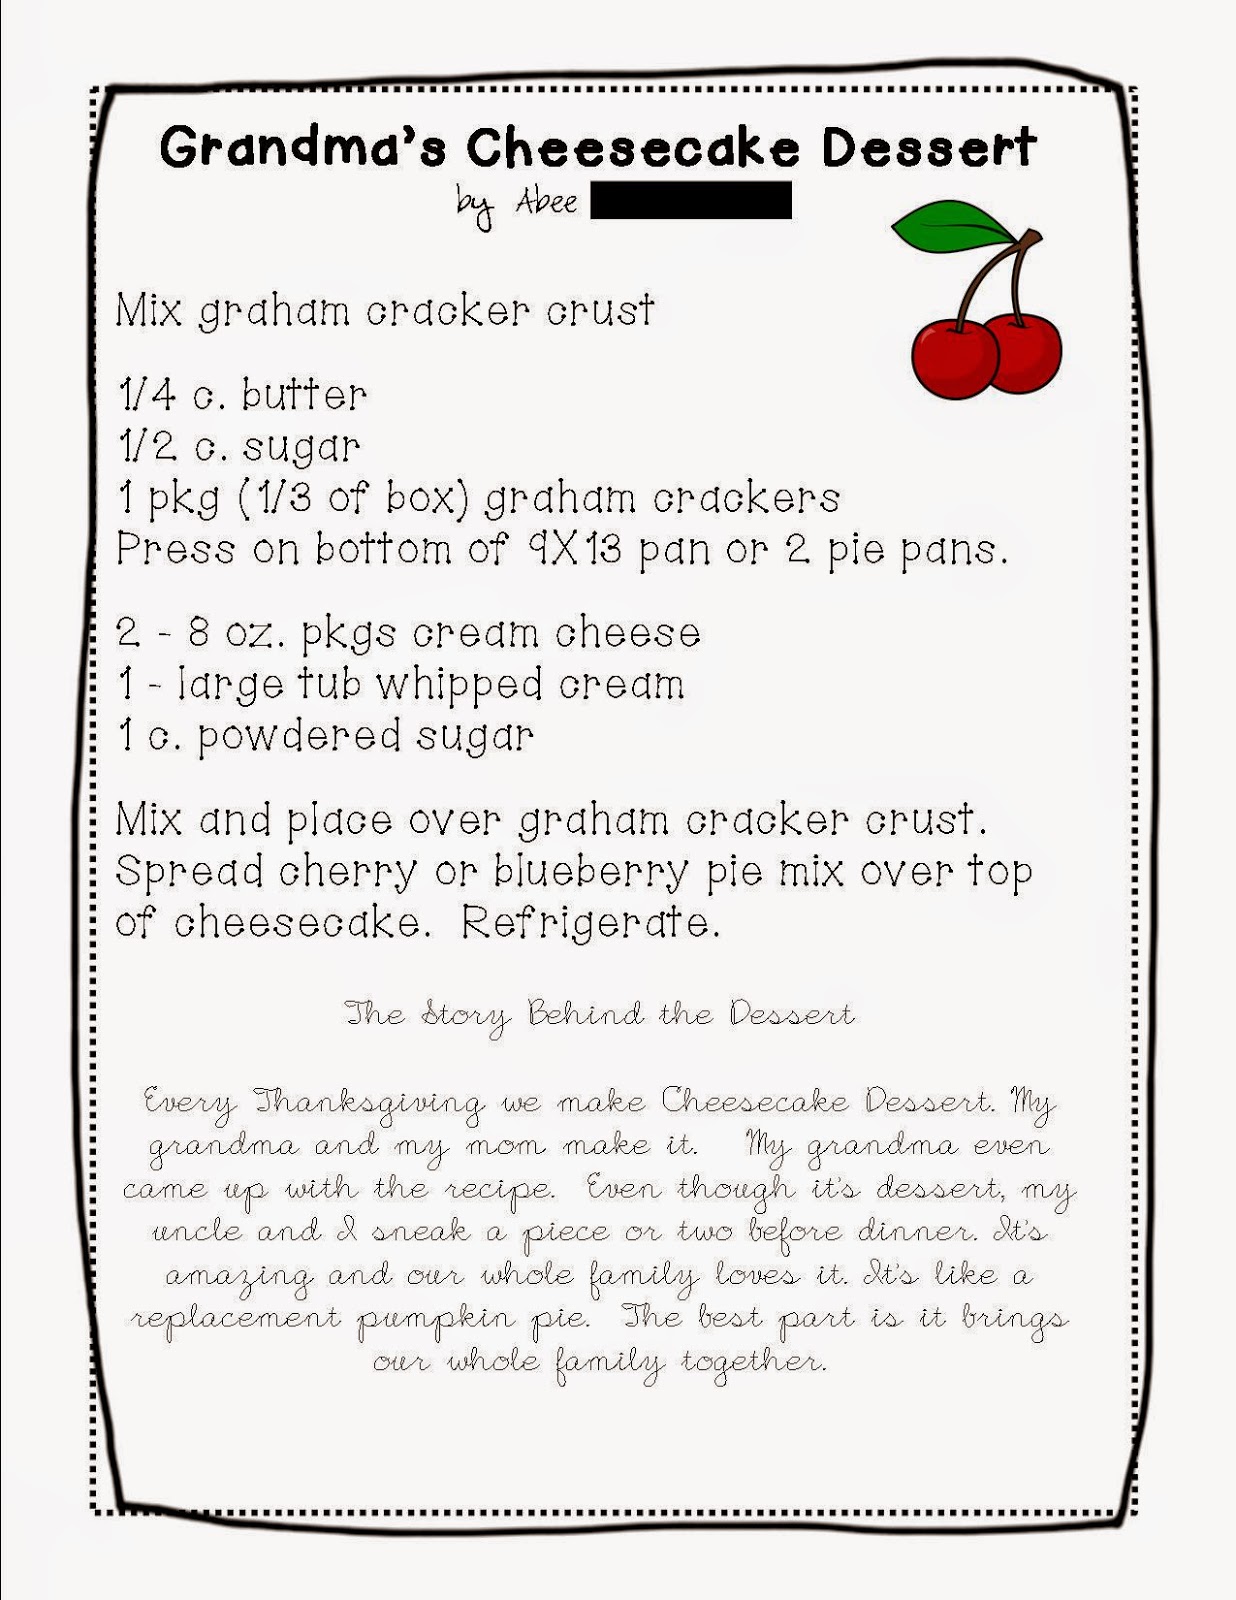 Grandma's Cheesecake Dessert
by Abee
Mix graham cracker crust
1/4 c. butter
1/2 c. sugar
1 pkg (1/3 of box) graham crackers
Press on bottom of 9X13 pan or 2 pie pans.
2 - 8 oz. pkgs cream cheese
1 - large tub whipped cream
1 c. powdered sugar
Mix and place over graham cracker crust.
Spread cherry or blueberry pie mix over top
of cheesecake. Refrigerate.
The Story Behind the Dessert
Every Thanksgiving we make Cheesecake Dessert. My
grandma and my mom make it. My grandma even
came up with the recipe. Even though it's dessert, my
uncle and I sneak a piece or two before dinner. It's
amazing and our whole family loves it. It's like a
replacement pumpkin pie. The best part is it brings
our whole family together.